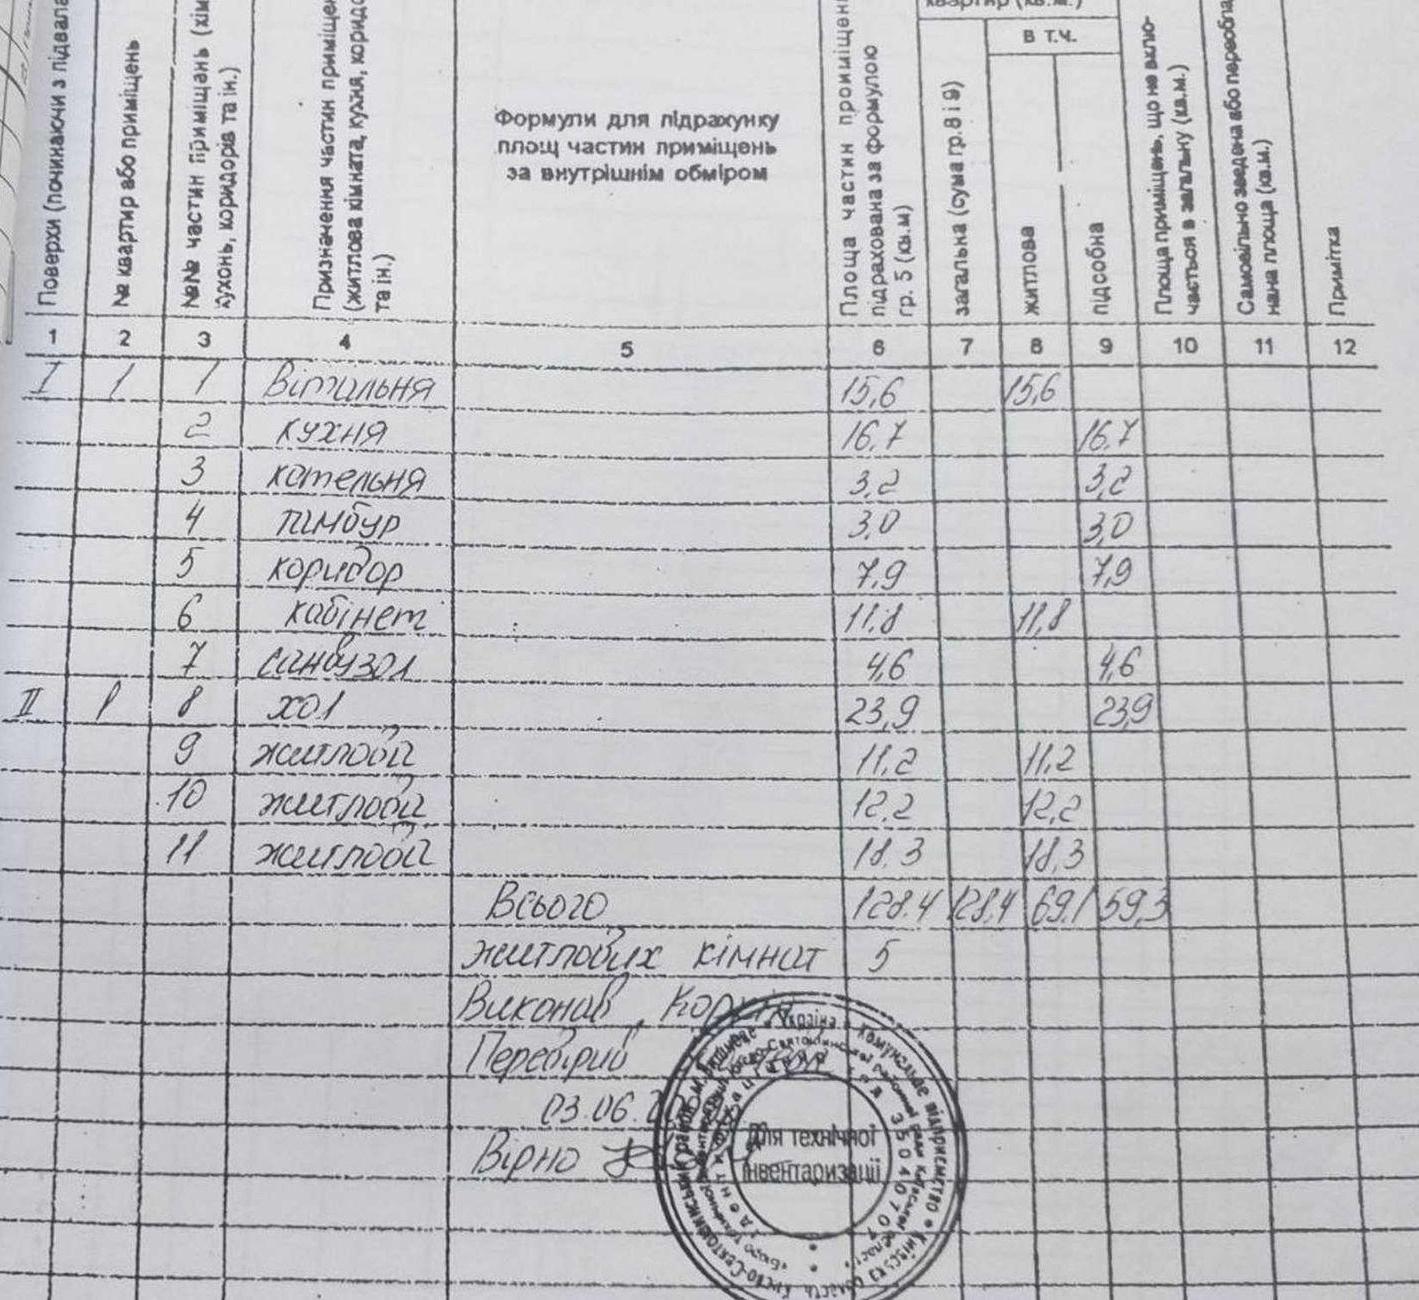 Поверхи (починаючи з підвала
№ квартир або приміщень
№№ частин приміщень (кім
кухонь, коридорів та ін.)
Призначення частин приміщен
(житлова кімната, кухня, коридо
та ін.)
Формули для підрахунку
площ частин приміщень
за внутрішнім обміром
Площа частин проиміщен
підрахована за формулою
гр. 5 (кв.м)
квартир (кв.м.)
загальна (сума гр.8 і 9)
в т.ч.
житлова
підсобна
Площа приміщень, що не вклю-
чається в загальну (кв.м.)
Самовільно зведена або переобла
нана площа (кв.м.)
Примітка
1 2 3 4 5 6 7 8 9 10 11 12
I 1 1 Вітальня 15,6 15,6
2 кухня 16,7 16,7
3 котельня 3,2 3,2
4 тамбур 3,0 3,0
5 коридор 7,9 7,9
6 кабінет 11,8 11,8
7 санвузол 4,6 4,6
II 1 8 хол 23,9 23,9
9 житлова 11,2 11,2
10 житлова 12,2 12,2
11 житлова 18,3 18,3
Всього 128,4 128,4 69,1 59,3
житлових кімнат 5
Виконав
Перевірив
03.06.
Вірно
Для технічної
інвентаризації
Україна
Комунальне підприємство
35040707